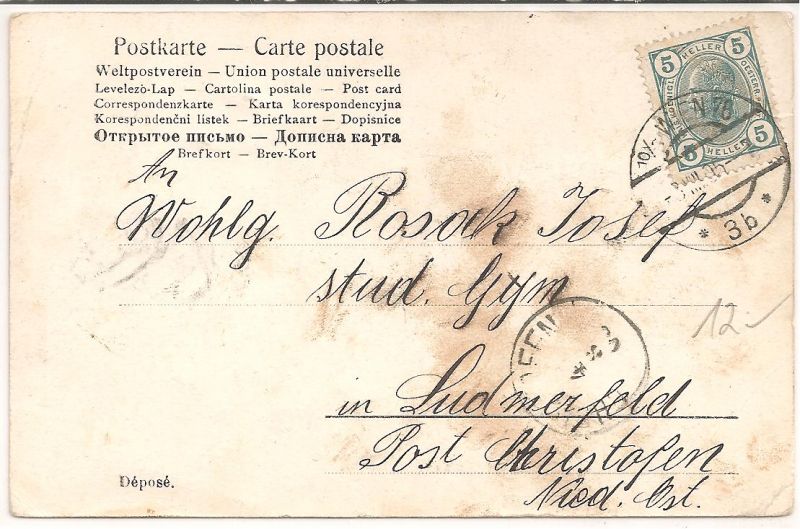 Postkarte — Carte postale
Weltpostverein – Union postale universelle
Levelezö-Lap – Cartolina postale – Post card
Correspondenzkarte – Karta korespondencyjna
Korespondenční lístek – Briefkaart – Dopisnice
Открытое письмо – Дописна карта
Brefkort – Brev-Kort
5 HELLER 5
5 HELLER 5
10/1
* 3b *
An
Wohlg. Rosak Josef
stud. Gym
12-
in Ludmerfeld
Post Christofen
Nied. Öst.
Déposé.